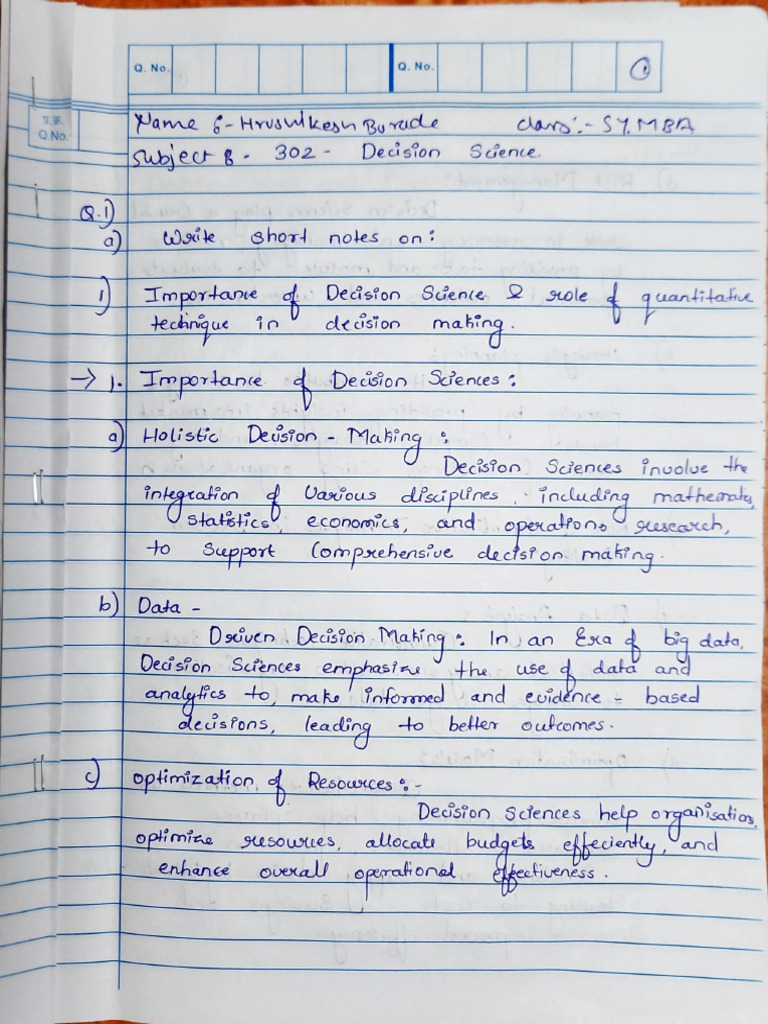 Q. No. Q. No. 1
प्र.क्र.
Q.No.
Name :- Hrushikesh Burade Class :- SY.MBA
Subject :- 302 - Decision Science
Q.1)
a) Write short notes on :
1) Importance of Decision Science & role of quantitative
technique in decision making.
→ 1. Importance of Decision Sciences :
a) Holistic Decision - Making :
Decision Sciences involve the
integration of various disciplines, including mathematics,
statistics, economics, and operations research,
to support comprehensive decision making.
b) Data -
Driven Decision Making : In an Era of big data,
Decision Sciences emphasize the use of data and
analytics to, make informed and evidence - based
decisions, leading to better outcomes.
c) optimization of Resources :-
Decision Sciences help organisation,
optimize resources, allocate budgets effeciently, and
enhance overall operational effectiveness.